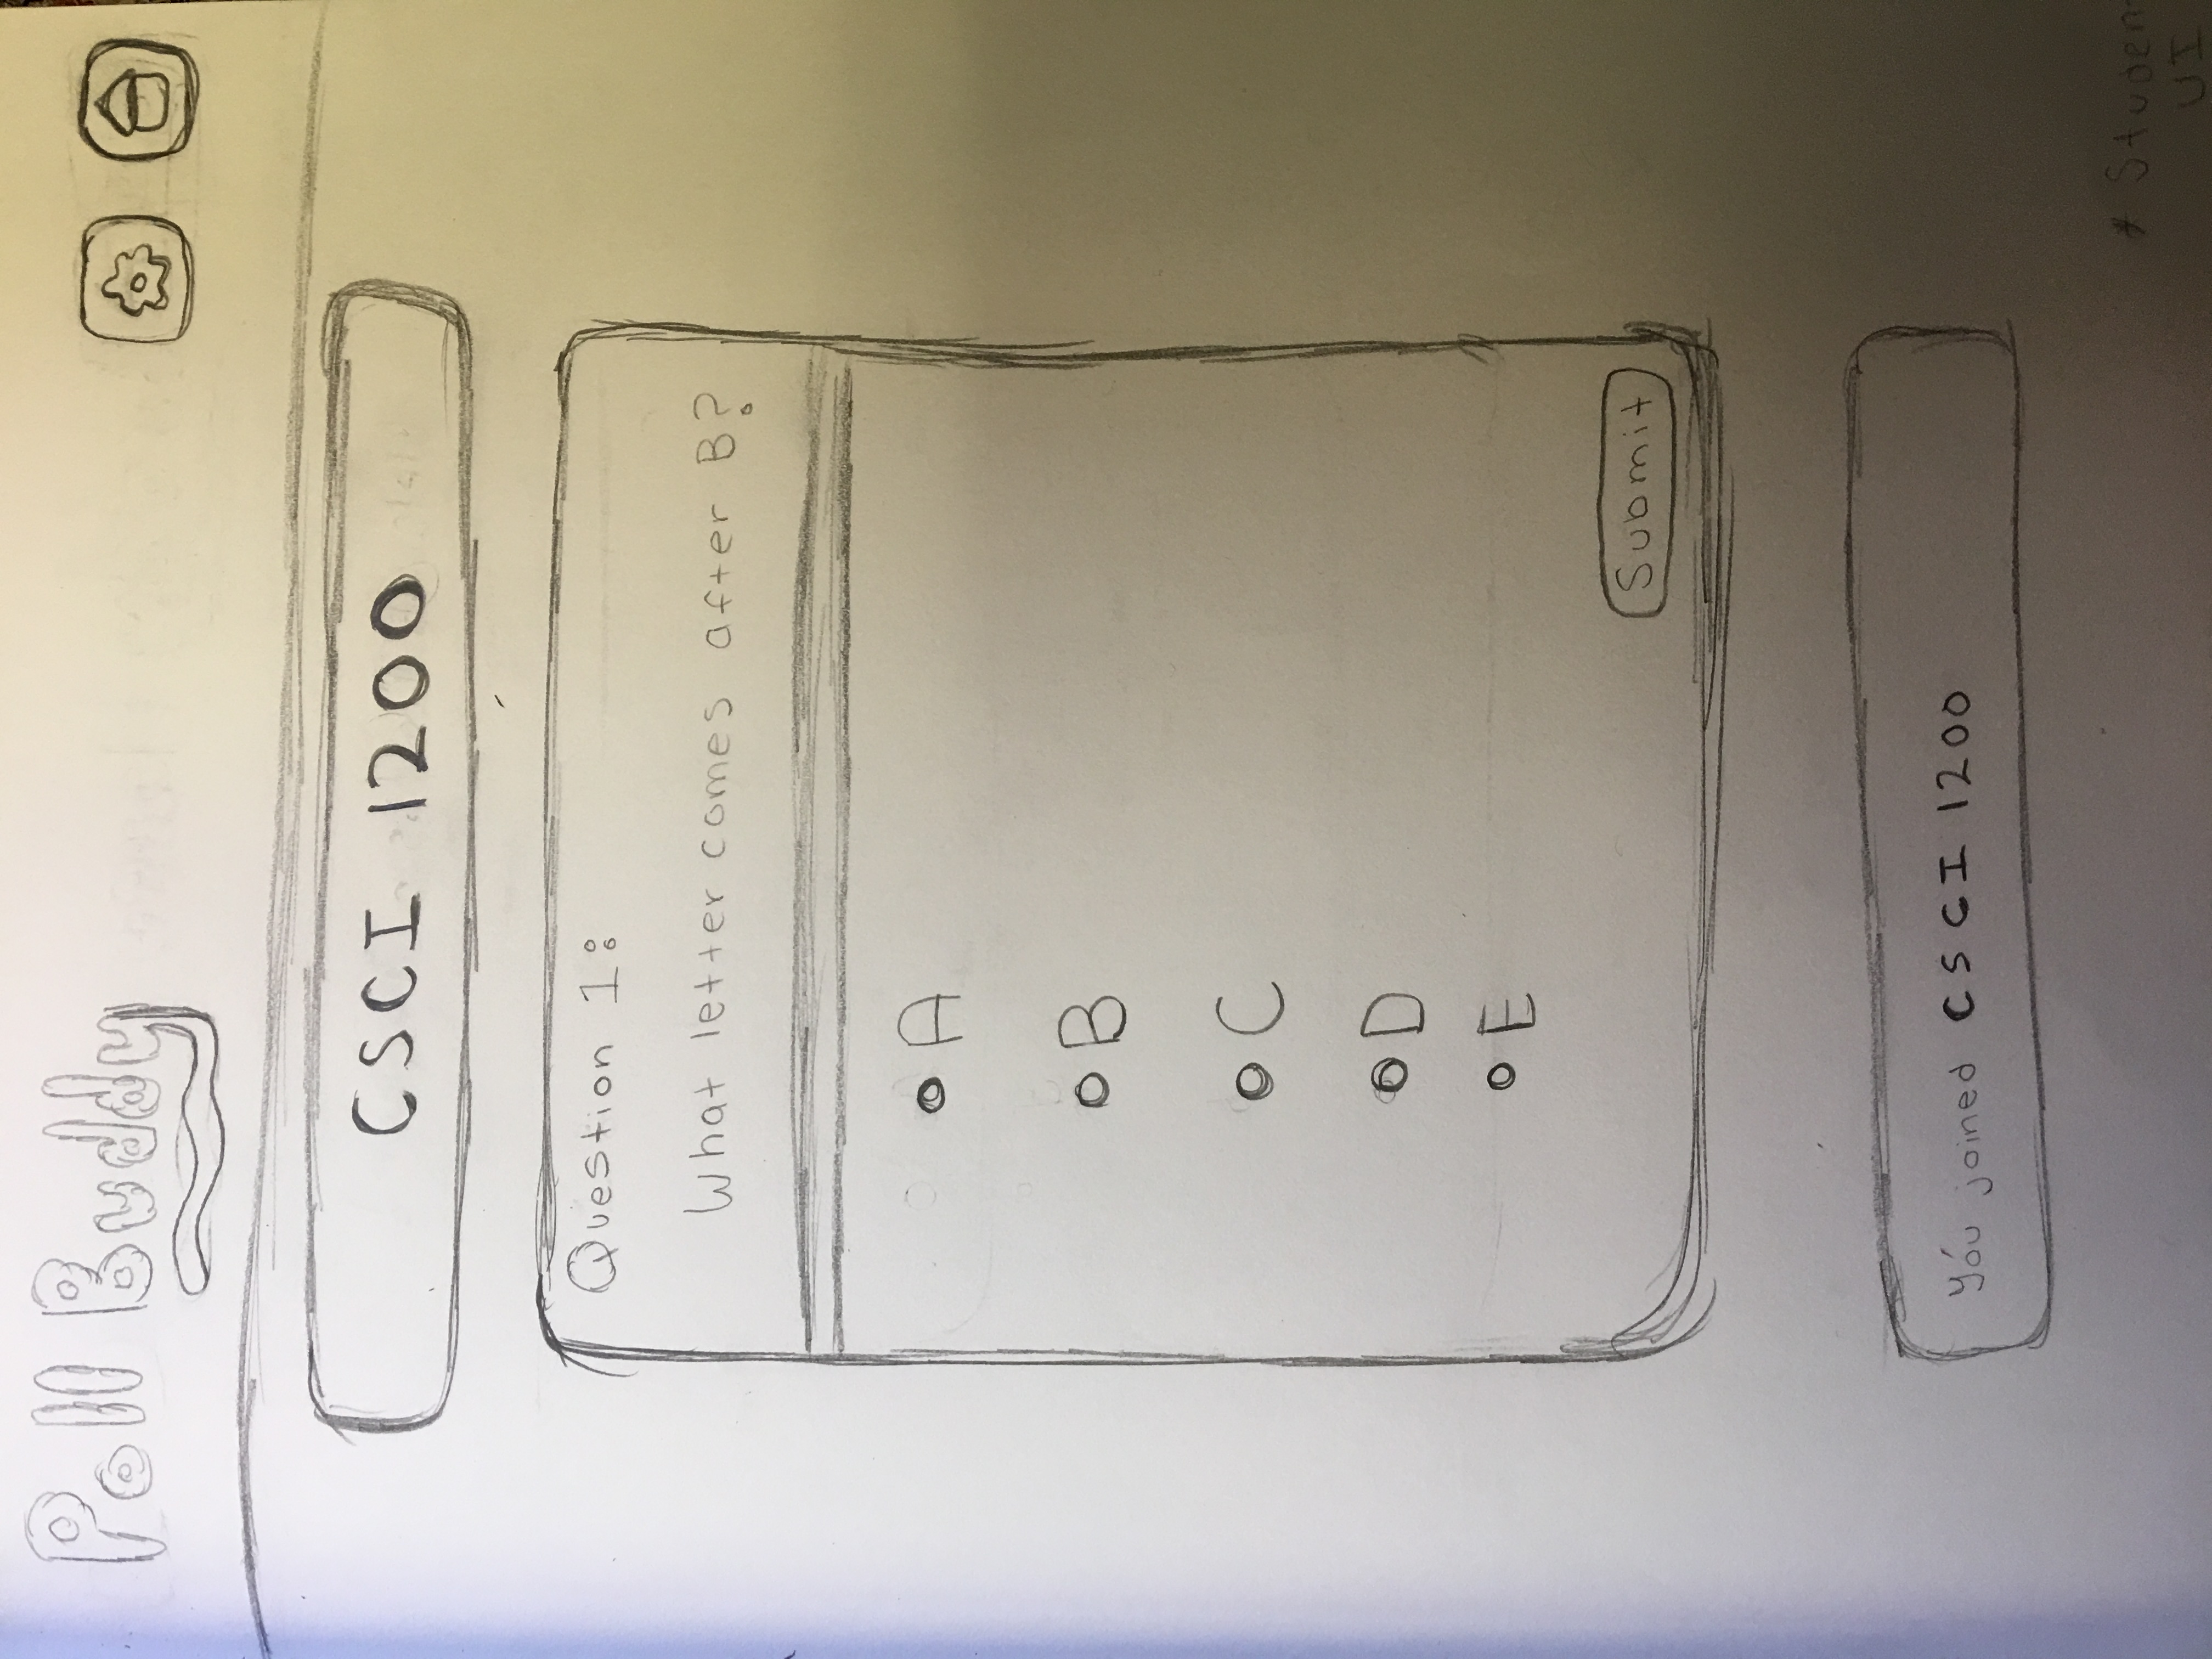 Poll Buddy
CSCI 1200
Question 1:
What letter comes after B?
A
B
C
D
E
Submit
You joined CSCI 1200
* Studen
UI